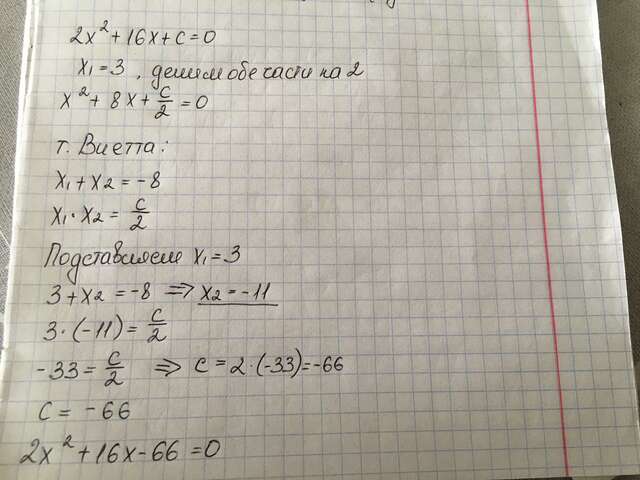 2x² + 16x + c = 0
x₁ = 3 , делим обе части на 2
x² + 8x + c/2 = 0
т. Виетта:
x₁ + x₂ = -8
x₁ · x₂ = c/2
Подставляем x₁ = 3
3 + x₂ = -8 ⇒ x₂ = -11
3 · (-11) = c/2
-33 = c/2 ⇒ c = 2 · (-33) = -66
c = -66
2x² + 16x - 66 = 0